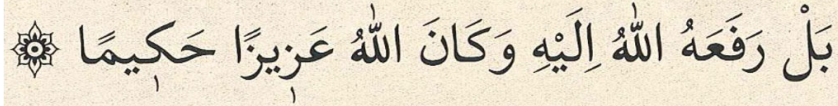 بَلْ رَفَعَهُ اللّٰهُ اِلَيْهِ وَكَانَ اللّٰهُ عَزٖيزًا حَكٖيمًا ۞